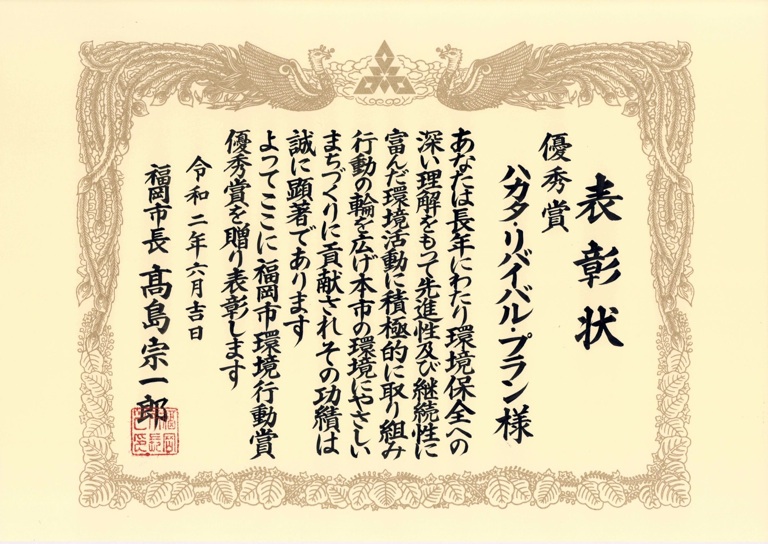 表彰状
優秀賞
ハカタ・リバイバル・プラン様
あなたは長年にわたり環境保全への
深い理解をもって先進性及び継続性に
富んだ環境活動に積極的に取り組み
行動の輪を広げ本市の環境にやさしい
まちづくりに貢献されその功績は
誠に顕著であります
よってここに福岡市環境行動賞
優秀賞を贈り表彰します
令和二年六月吉日
福岡市長 髙島宗一郎